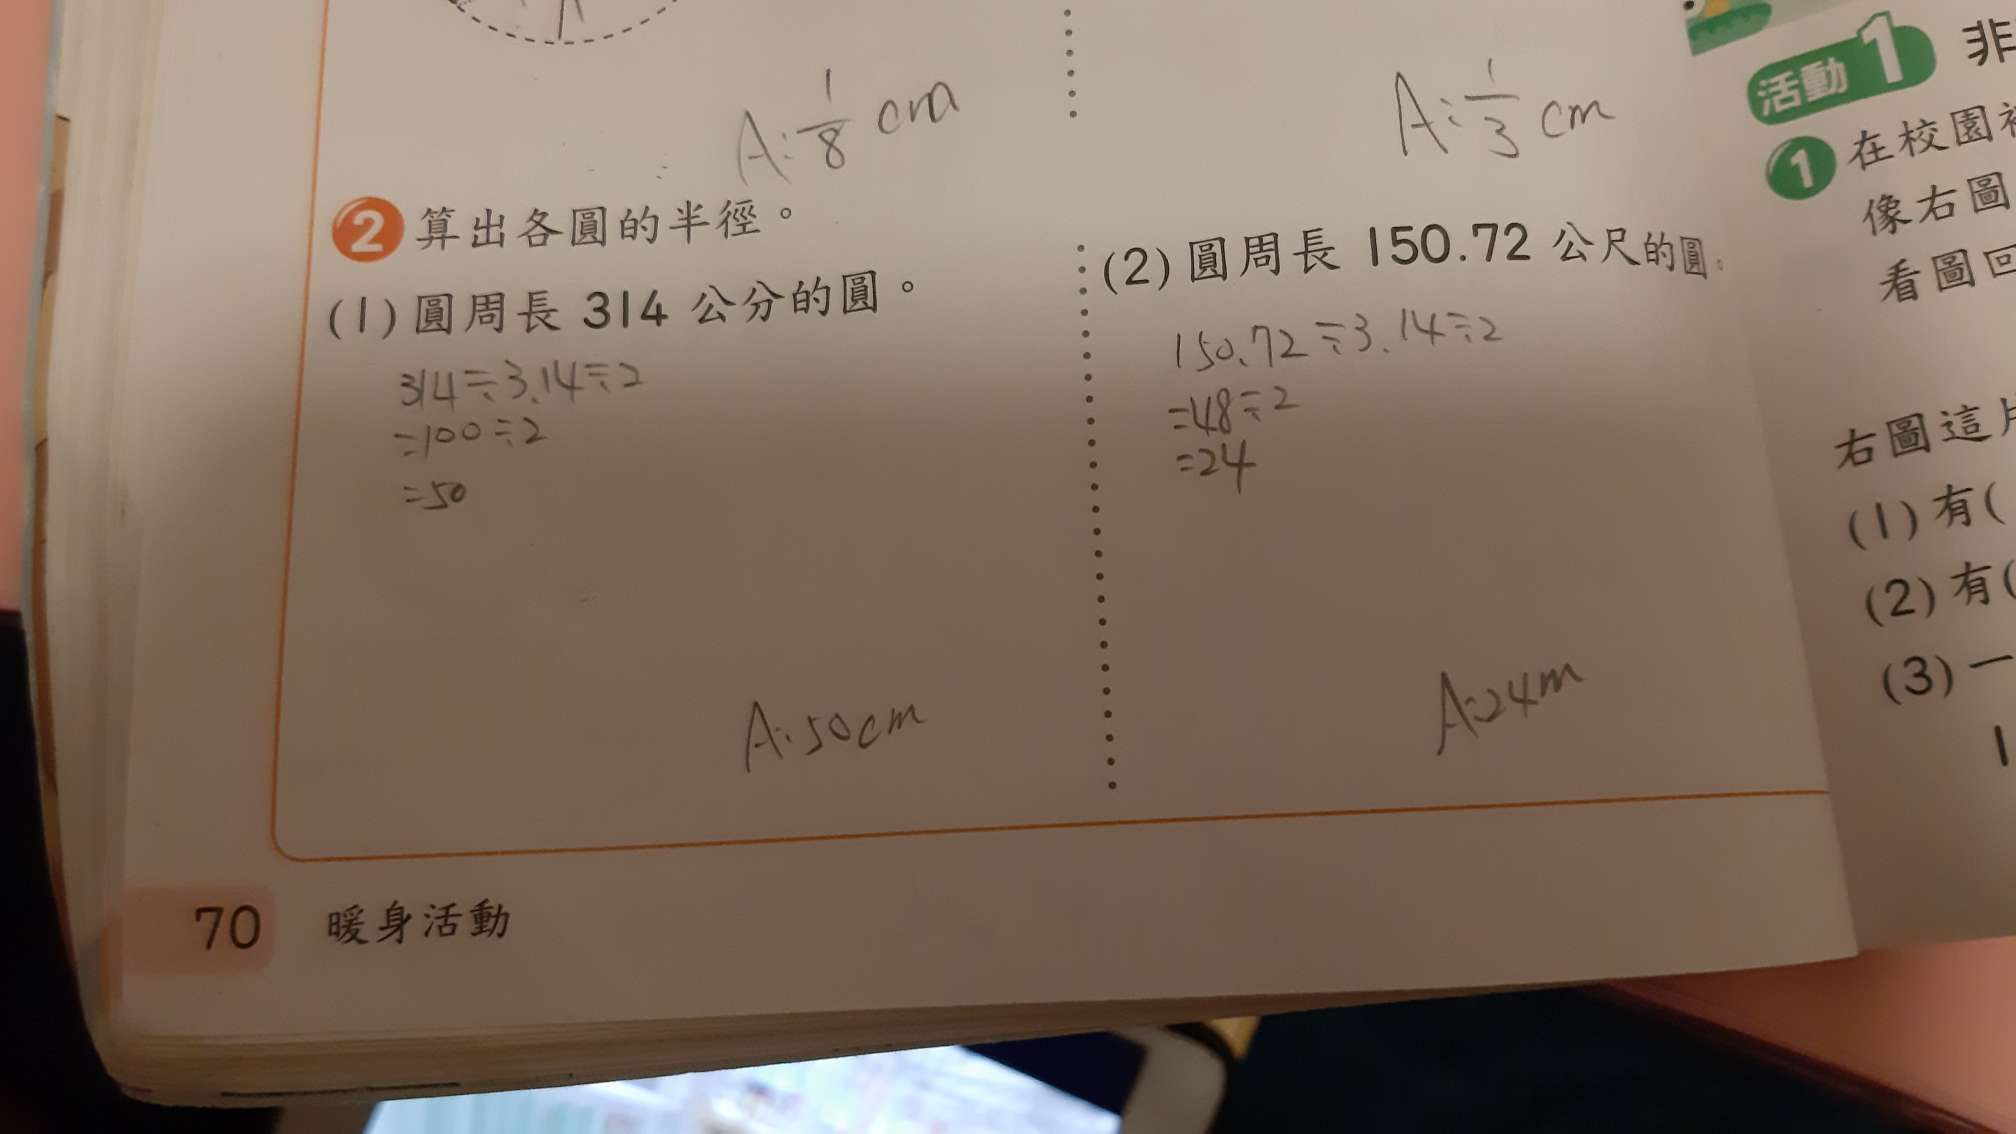 A: 1/8 cm
A: 1/3 cm
2 算出各圓的半徑。
(1) 圓周長 314 公分的圓。
314÷3.14÷2
=100÷2
=50
A:50cm
(2) 圓周長 150.72 公尺的圓。
150.72÷3.14÷2
=48÷2
=24
A:24m
70 暖身活動
活動 1 非
1 在校園裡
像右圖
看圖回
右圖這片
(1) 有(
(2) 有(
(3) 一
1